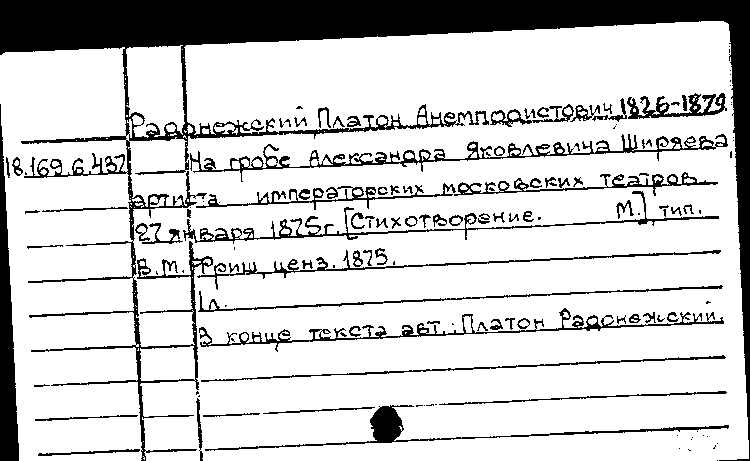 Радонежский, Платон Анемподистович, 1826-1879
18.169.6.437 На гробе Александра Яковлевича Ширяева,
артиста императорских московских театров.
27 января 1875г. [Стихотворение. М.], тип.
В.М. Фриш, ценз. 1875.
1л.
В конце текста авт.: Платон Радонежский.